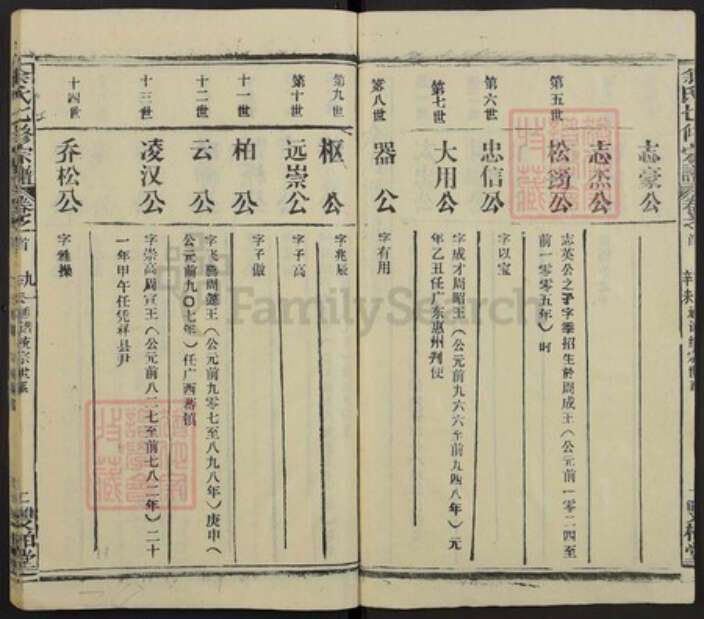 余氏七修宗譜
志豪公
志杰公
第五世
公
志英公之子字季招生於周成王（公元前一〇二四至
前一〇〇五年）时
第六世
忠信公
字以宝
第七世
大用公
字成才周昭王（公元前九六六至前九四八年）元
年乙丑任广东惠州判使
第八世
器公
字有用
第九世
枢公
字兆辰
第十世
远崇公
字子高
十一世
柏公
字子傲
十二世
云公
字飞腾周懿王（公元前九零七至八九八年）庚申（
公元前九〇七年）任广西
十三世
凌汉公
字崇高周宣王（公元前八二七至前七八二年）二十
一年甲午任凭祥县尹
十四世
乔松公
字雅操
余氏七修宗譜
FamilySearch